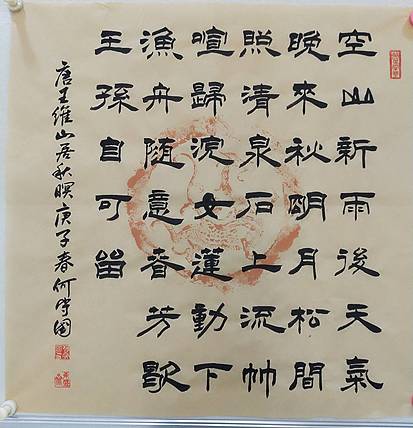 空山新雨後天氣
晚來秋明月松間
照清泉石上流竹
喧歸浣女蓮動下
漁舟随意春芳歇
王孫自可留
唐王維山居秋暝庚子春何